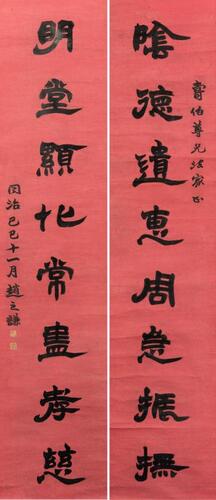 壽伯尊兄法家正
陰德遺惠周急振撫
明堂顯化常盡孝慈
同治己巳十一月趙之謙